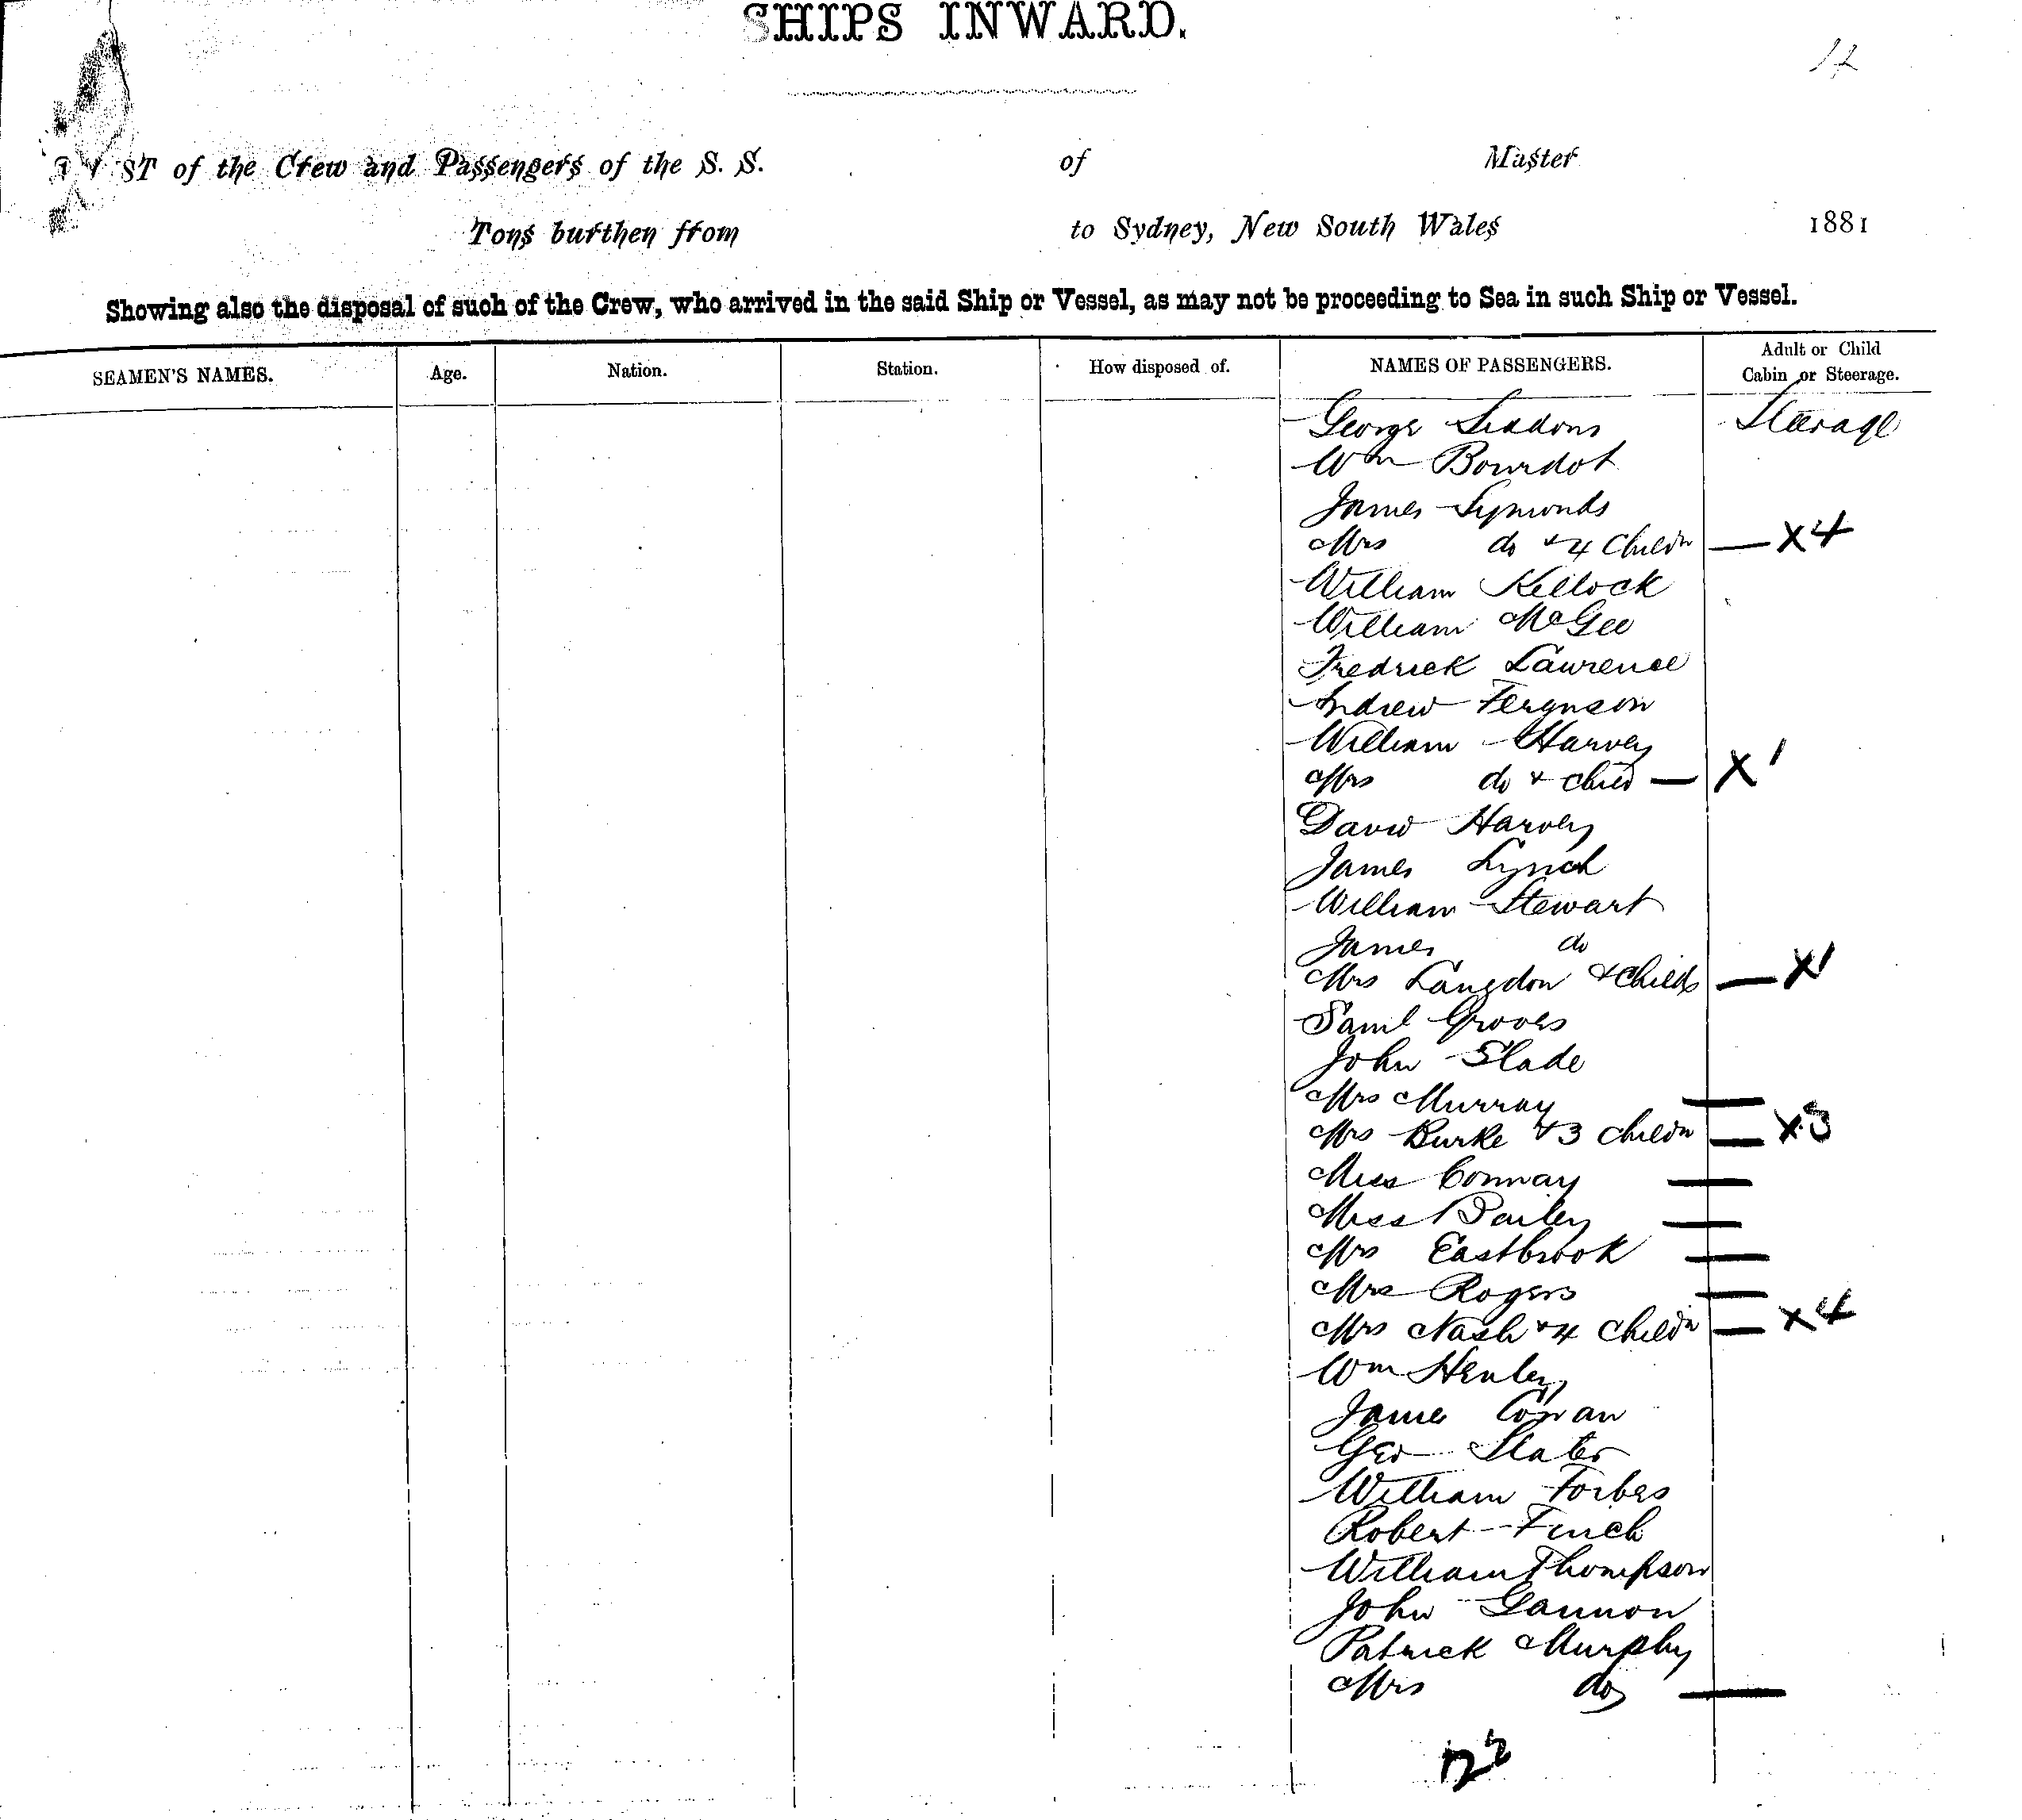 SHIPS INWARD.
12
ST of the Crew and Passengers of the S. S. of Master
Tons burthen from to Sydney, New South Wales 1881
Showing also the disposal of such of the Crew, who arrived in the said Ship or Vessel, as may not be proceeding to Sea in such Ship or Vessel.
SEAMEN'S NAMES. Age. Nation. Station. How disposed of. NAMES OF PASSENGERS. Adult or Child Cabin or Steerage.
George Siddons Steerage
Wm Bourdot
James Symonds
Mrs do + 4 Childn — X4
William Kellock
William McGee
Fredrick Lawrence
Andrew Ferguson
William Harvey
Mrs do + child — X1
David Harvey
James Lynch
William Stewart
James do
Mrs Langdon + Child — X1
Saml Groves
John Slade
Mrs Murray —
Mrs Burke + 3 Childn — X3
Miss Conway —
Miss Bailey —
Mrs Eastbrook —
Mrs Rogers —
Mrs Nash + 4 Childn — X4
Wm Henley
James
Geo Slater
William Forbes
Robert Finch
William Thompson
John Gannon
Patrick Murphy
Mrs do —